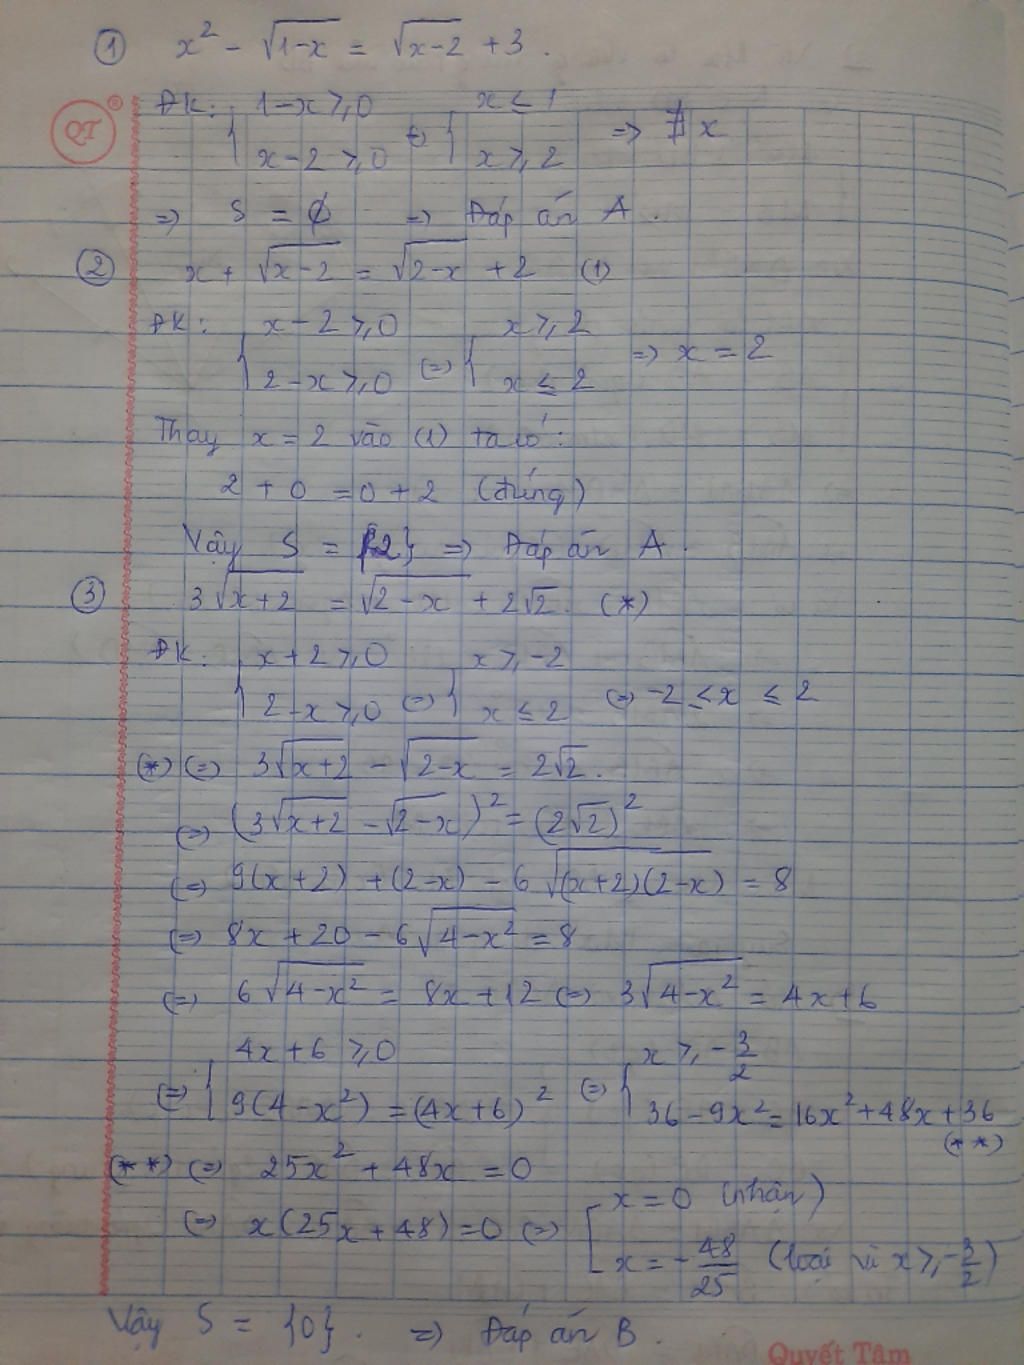 ① x² - √(1-x) = √(x-2) + 3.
QT ®
ĐK: { 1-x ≥ 0 ⇔ { x ≤ 1
x-2 ≥ 0 x ≥ 2 ⇒ ∄ x
⇒ S = ∅ ⇒ Đáp án A.
② x + √(x-2) = √(2-x) + 2 (1)
ĐK: { x-2 ≥ 0 ⇔ { x ≥ 2
2-x ≥ 0 x ≤ 2 ⇒ x = 2
Thay x = 2 vào (1) ta có:
2 + 0 = 0 + 2 (đúng)
Vậy S = {2} ⇒ Đáp án A.
③ 3√(x+2) = √(2-x) + 2√2. (*)
ĐK: { x+2 ≥ 0 ⇔ { x ≥ -2
2-x ≥ 0 x ≤ 2 ⇔ -2 ≤ x ≤ 2
(*) ⇔ 3√(x+2) - √(2-x) = 2√2.
⇔ (3√(x+2) - √(2-x))² = (2√2)²
⇔ 9(x+2) + (2-x) - 6√((x+2)(2-x)) = 8
⇔ 8x + 20 - 6√(4-x²) = 8
⇔ 6√(4-x²) = 8x + 12 ⇔ 3√(4-x²) = 4x + 6
⇔ { 4x+6 ≥ 0 ⇔ { x ≥ -3/2
9(4-x²) = (4x+6)² 36 - 9x² = 16x² + 48x + 36
(**)
(**) ⇔ 25x² + 48x = 0
⇔ x(25x + 48) = 0 ⇔ [ x = 0 (nhận)
x = -48/25 (loại vì x ≥ -3/2)
Vậy S = {0}. ⇒ Đáp án B.
Quyết Tâm